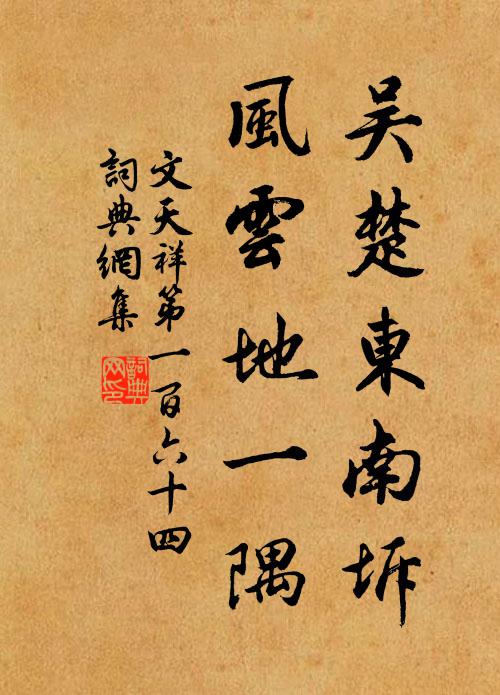 吳楚東南坼
風雲地一隅
文天祥第一百六十四
詞典網集
詞典網印